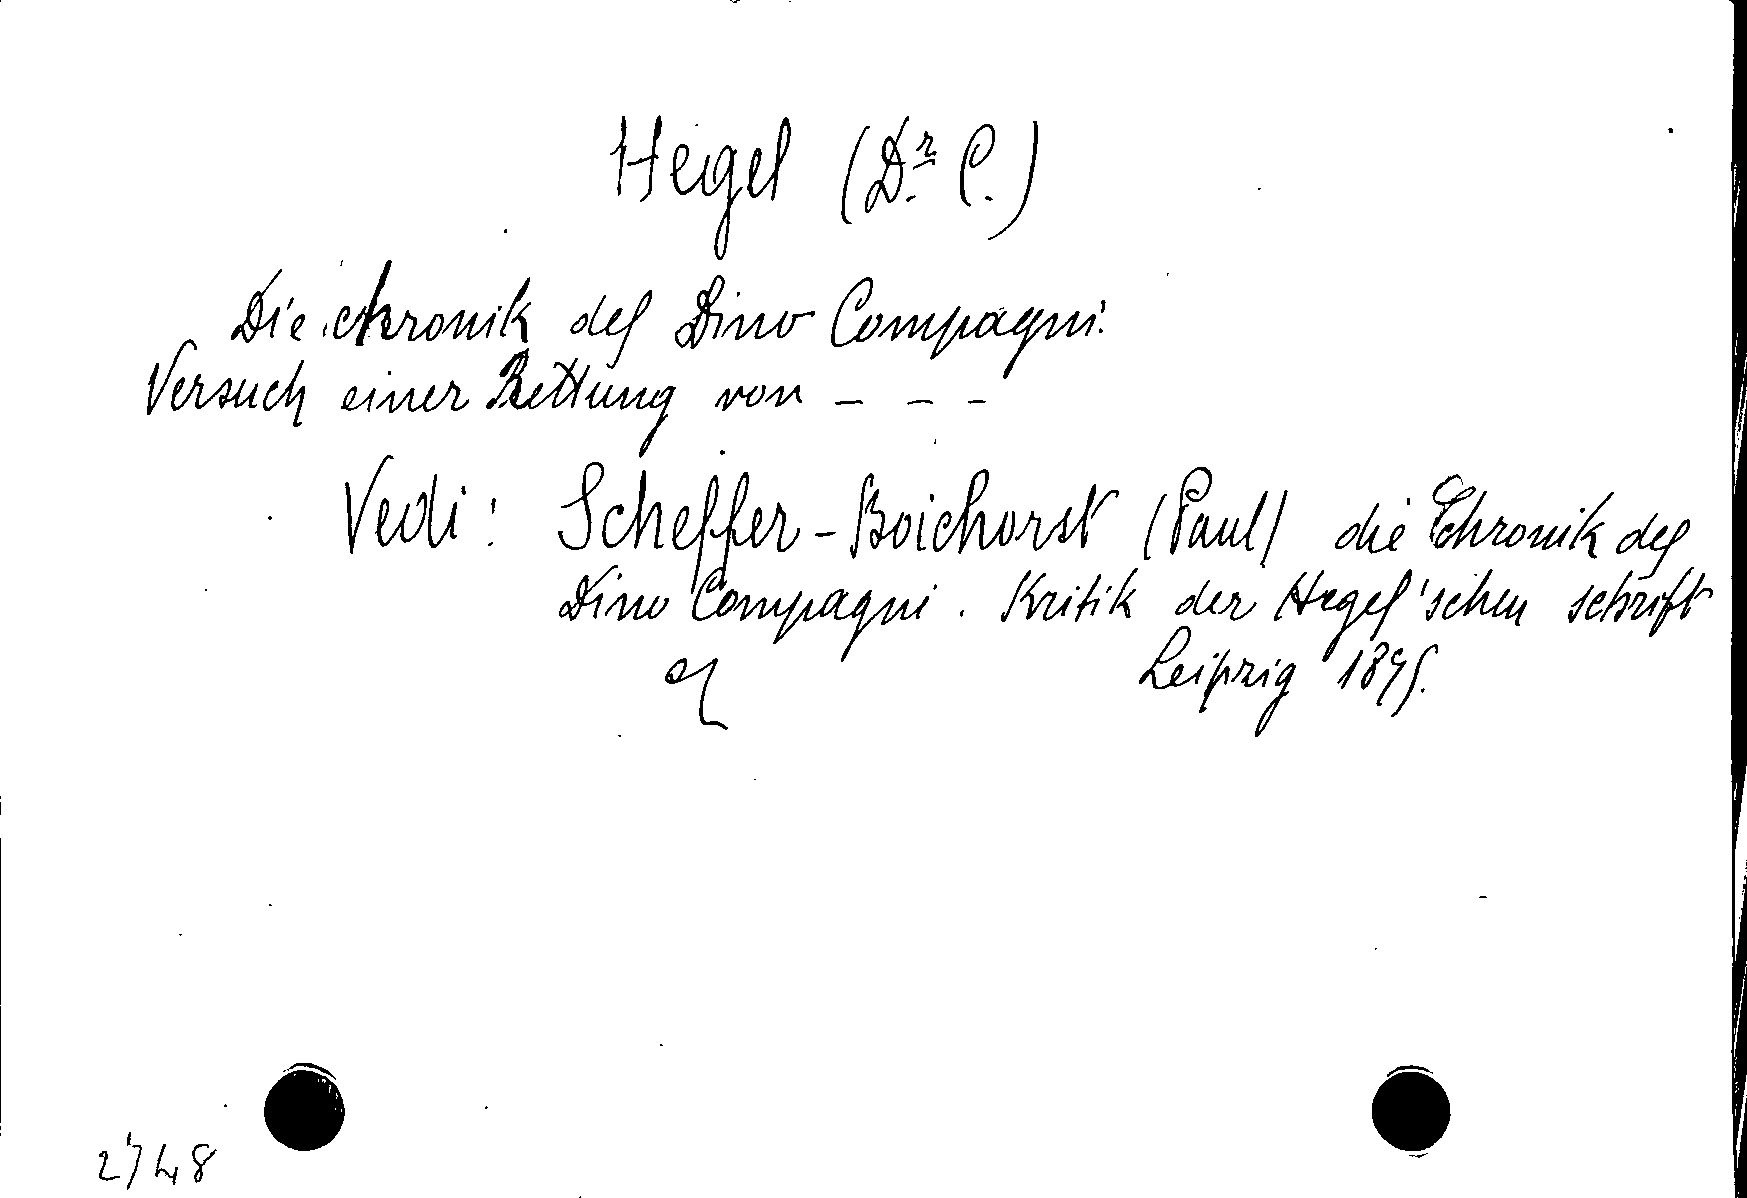 Hegel (Dr. C.)
Die chronik des Dino Compagni.
Versuch einer Rettung von - - -
Vedi: Scheffer-Boichorst (Paul) die Chronik des
Dino Compagni. Kritik der Hegel'schen schrift
Leipzig 1875.
2748